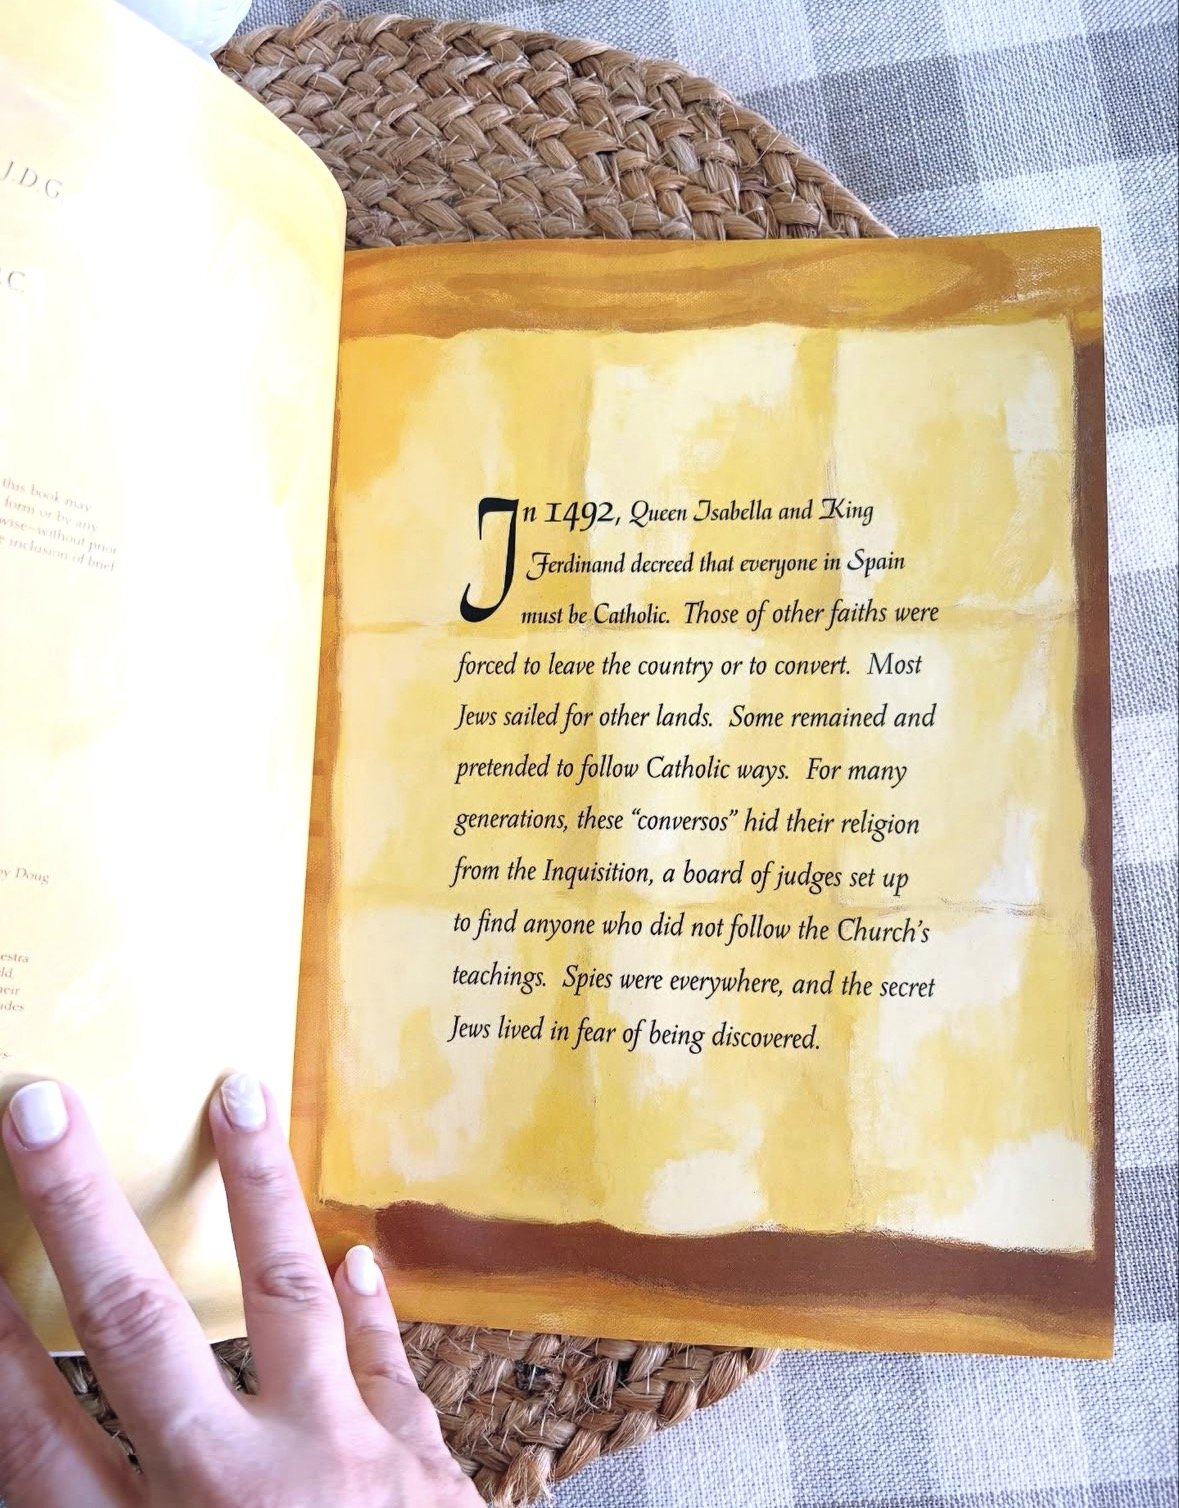 J.D.G
.C.
this book may
form or by any
wise—without prior
inclusion of brief
by Doug
estra
ld
heir
udes
In 1492, Queen Isabella and King
Ferdinand decreed that everyone in Spain
must be Catholic. Those of other faiths were
forced to leave the country or to convert. Most
Jews sailed for other lands. Some remained and
pretended to follow Catholic ways. For many
generations, these “conversos” hid their religion
from the Inquisition, a board of judges set up
to find anyone who did not follow the Church’s
teachings. Spies were everywhere, and the secret
Jews lived in fear of being discovered.